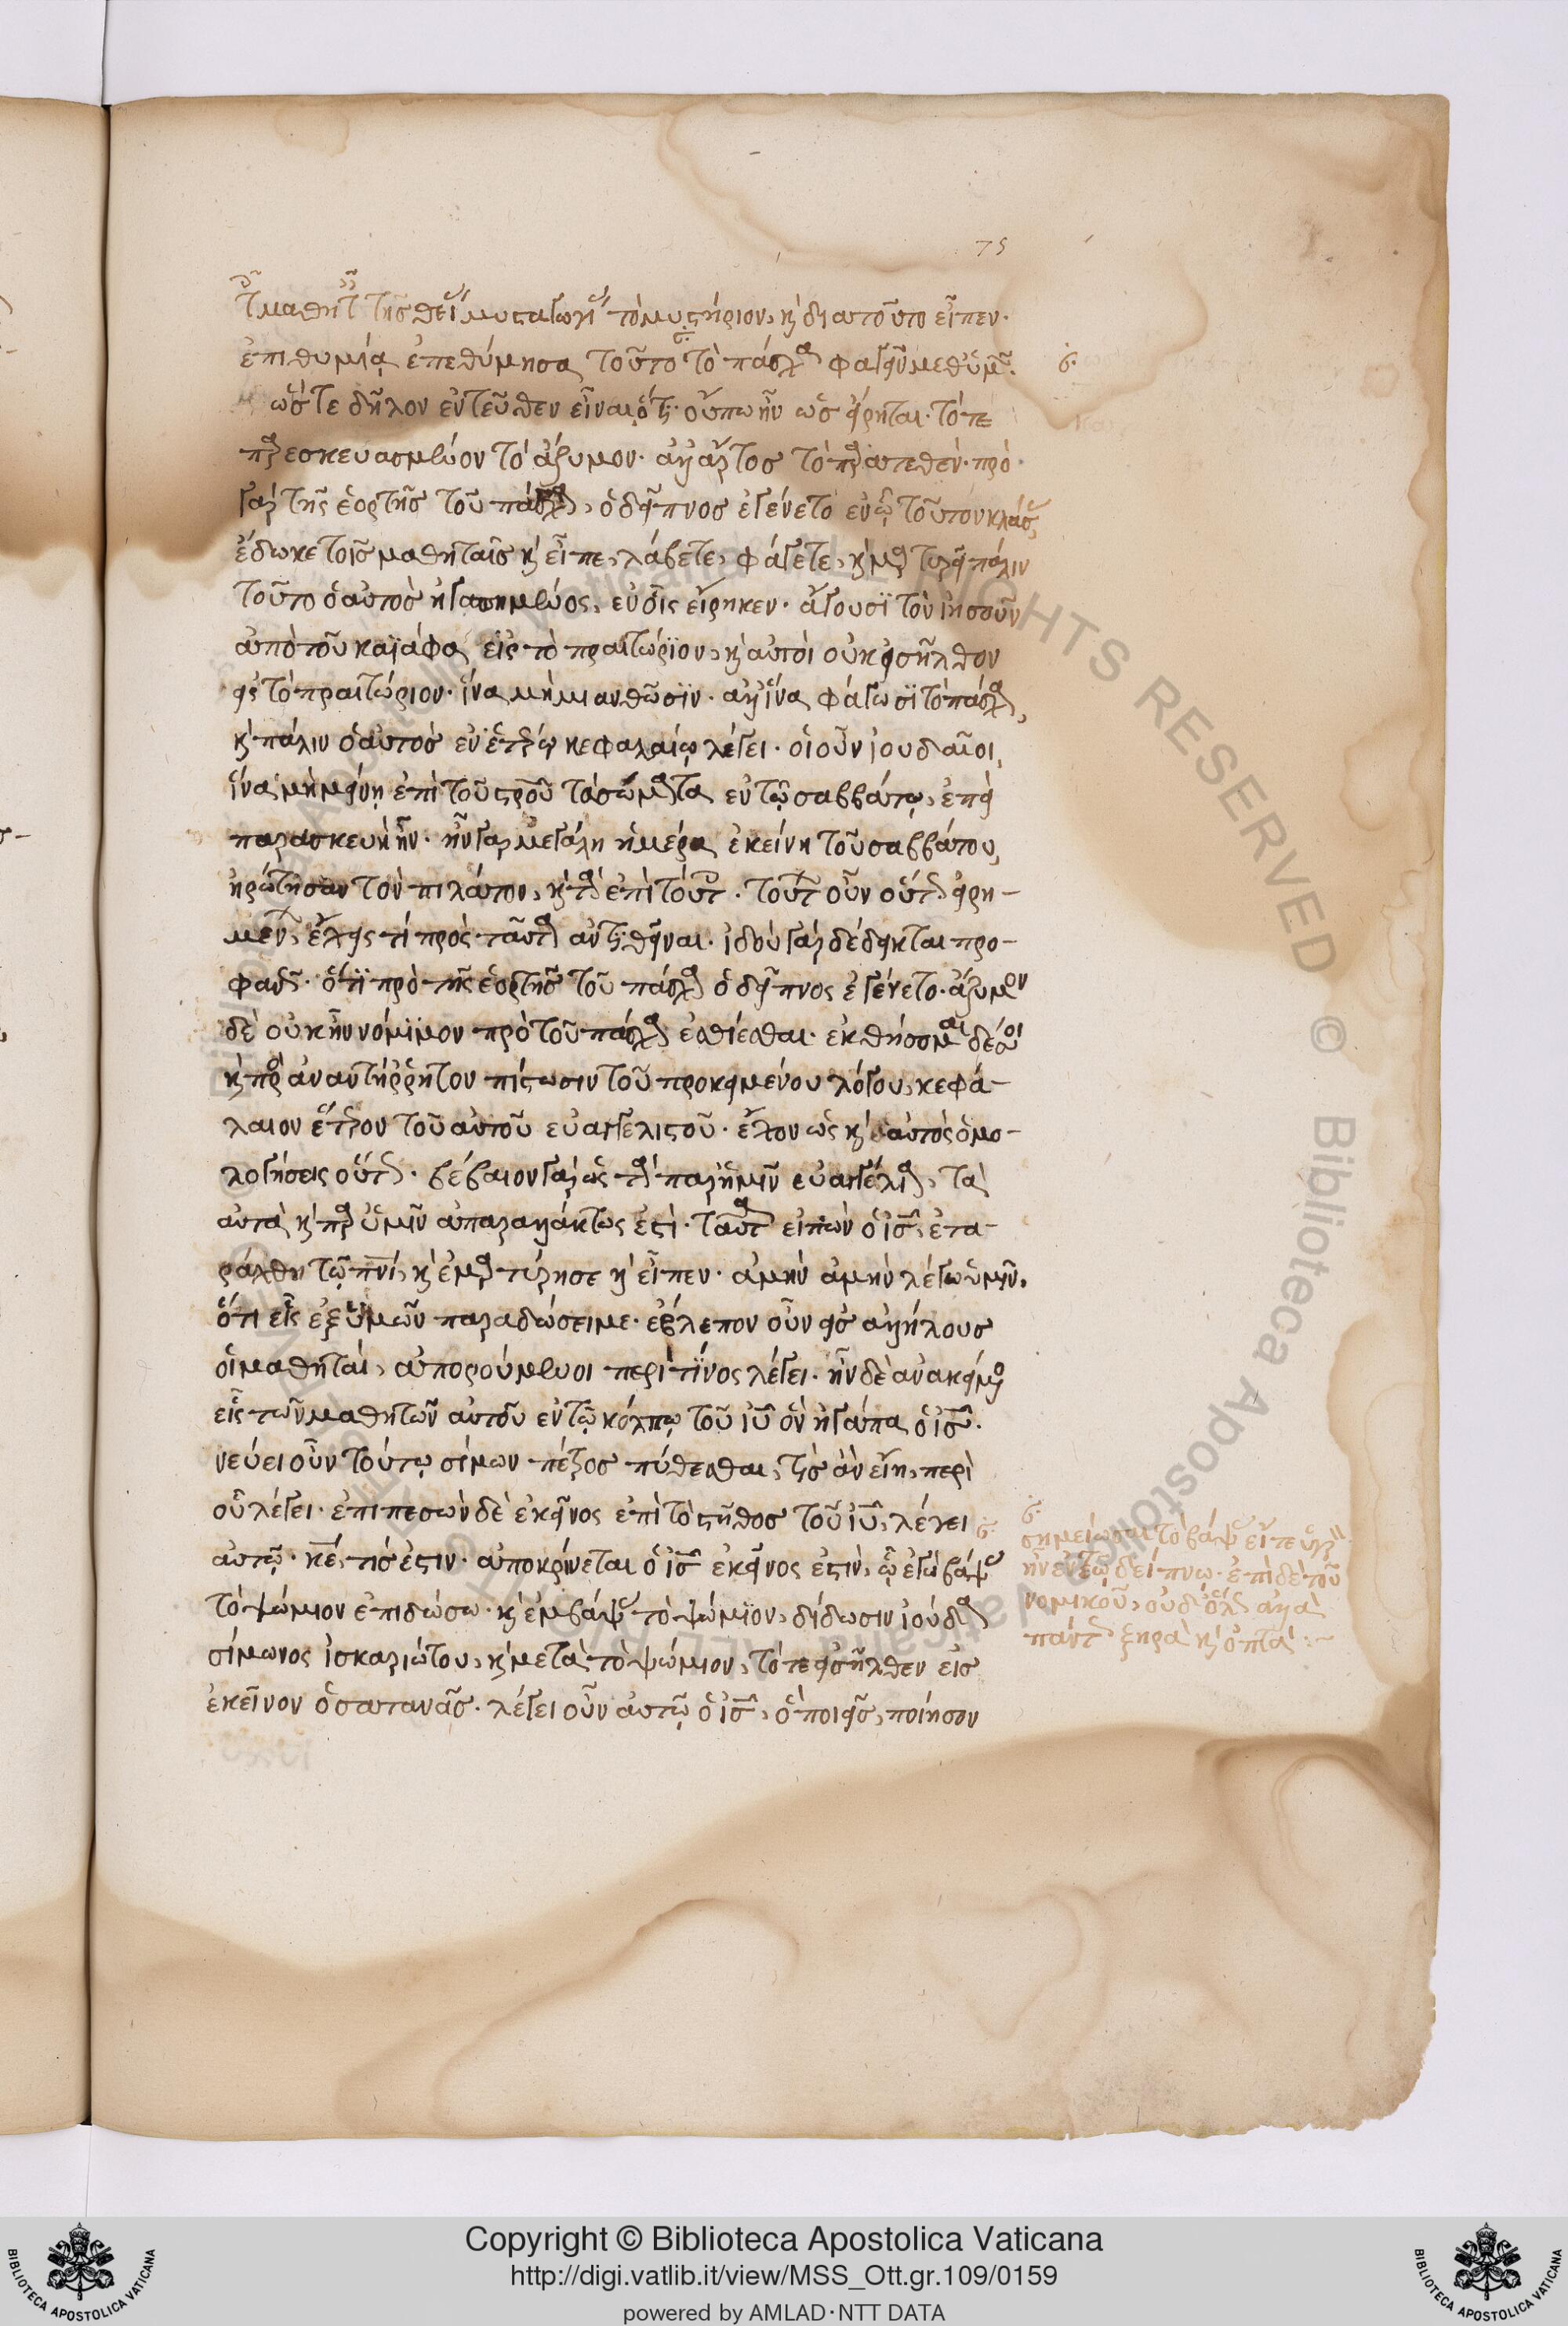 75
ἐπιθυμίᾳ ἐπεθύμησα τοῦτο τὸ πάσχα φαγεῖν μεθ' ὑμῶν.
ὥστε δῆλον ἐντεῦθεν εἶναι ὅτι οὔπω ἦν ὡς εἴρηται. τότε
παρεσκευασμένον τὸ ἄζυμον. ἀλλ' ἄρτος τὸ παρατεθέν. πρὸ
γὰρ τῆς ἑορτῆς τοῦ πάσχα, ὁ δεῖπνος ἐγένετο ἐν ᾧ τοῦτον κλάσας,
ἔδωκε τοῖς μαθηταῖς καὶ εἶπε, λάβετε, φάγετε, καὶ μαρτυρεῖ πάλιν
τοῦτο ὁ αὐτὸς ἠγαπημένος, εὐθὺς εἴρηκεν. ἄγουσι τὸν ἰησοῦν
ἀπὸ τοῦ καϊάφα εἰς τὸ πραιτώριον, καὶ αὐτοὶ οὐκ εἰσῆλθον
εἰς τὸ πραιτώριον. ἵνα μὴ μιανθῶσιν. ἀλλ' ἵνα φάγωσι τὸ πάσχα,
καὶ πάλιν ὁ αὐτὸς ἐν ἑτέρῳ κεφαλαίῳ λέγει. οἱ οὖν ἰουδαῖοι,
ἵνα μὴ μείνῃ ἐπὶ τοῦ σταυροῦ τὰ σώματα ἐν τῷ σαββάτῳ, ἐπεὶ
παρασκευὴ ἦν. ἦν γὰρ μεγάλη ἡμέρα ἐκείνη τοῦ σαββάτου,
ἠρώτησαν τὸν πιλάτον, καὶ τὰ ἐπὶ τούτοις. τούτων οὖν οὕτως εἰρη-
μένων, ἔχεις τί πρὸς ταῦτα ἀντιθεῖναι. ἰδοὺ γὰρ δέδεικται προ-
φανῶς. ὅτι πρὸ τῆς ἑορτῆς τοῦ πάσχα ὁ δεῖπνος ἐγένετο. ἄζυμον
δὲ οὐκ ἦν νόμιμον πρὸ τοῦ πάσχα ἐσθίεσθαι. ἐκθήσομαι δέ σοι
καὶ πρὸς ἀναντίρρητον πίστωσιν τοῦ προκειμένου λόγου, κεφά-
λαιον ἕτερον τοῦ αὐτοῦ εὐαγγελιστοῦ. ἔχον ὡς καὶ αὐτὸς ὁμο-
λογήσεις οὕτως. βέβαιον γὰρ ὡς τὰ παρ' ἡμῖν εὐαγγέλια, τὰ
αὐτὰ καὶ παρ' ὑμῖν ἀπαραλλάκτως ἐστί. ταῦτα εἰπὼν ὁ ις, ἐτα-
ράχθη τῷ πνι, καὶ ἐμαρτύρησε καὶ εἶπεν. ἀμὴν ἀμὴν λέγω ὑμῖν,
ὅτι εἷς ἐξ ὑμῶν παραδώσει με. ἔβλεπον οὖν εἰς ἀλλήλους
οἱ μαθηταί, ἀπορούμενοι περὶ τίνος λέγει. ἦν δὲ ἀνακείμενος
εἷς τῶν μαθητῶν αὐτοῦ ἐν τῷ κόλπῳ τοῦ ιυ ὃν ἠγάπα ὁ ις.
νεύει οὖν τούτῳ σίμων πέτρος πύθεσθαι, τίς ἂν εἴη, περὶ
οὗ λέγει. ἐπιπεσὼν δὲ ἐκεῖνος ἐπὶ τὸ στῆθος τοῦ ιυ, λέγει
αὐτῷ. κε, τίς ἐστιν. ἀποκρίνεται ὁ ις ἐκεῖνος ἐστίν, ᾧ ἐγὼ βάψας
τὸ ψώμιον ἐπιδώσω. καὶ ἐμβάψας τὸ ψώμιον, δίδωσιν ἰούδᾳ
σίμωνος ἰσκαριώτου, καὶ μετὰ τὸ ψώμιον, τότε εἰσῆλθεν εἰς
ἐκεῖνον ὁ σατανᾶς. λέγει οὖν αὐτῷ ὁ ις, ὃ ποιεῖς, ποίησον
σημείωσαι τὸ βάψας
ἦν ἐν τῷ δείπνω. ἐπὶ δὲ τοῦ
νομικοῦ, ἀλλὰ
πάντα ξηρὰ καὶ ὀπτά
Copyright © Biblioteca Apostolica Vaticana
http://digi.vatlib.it/view/MSS_Ott.gr.109/0159
powered by AMLAD·NTT DATA